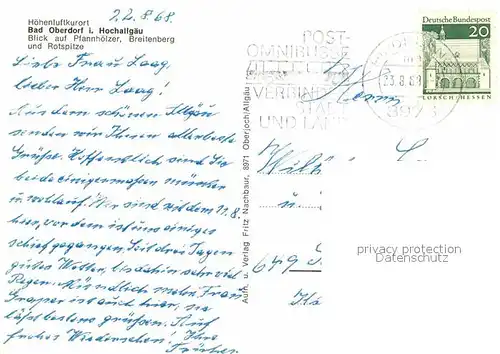 22.8.68.
Höhenluftkurort
Bad Oberdorf i. Hochallgäu
Blick auf Pfannhölzer, Breitenberg
und Rotspitze
Liebe Frau Laag,
lieber Herr Laag!
Aus dem schönen Allgäu
senden wir Ihnen allerbeste
Grüße. Hoffentlich sind Sie
beide einigermaßen munter
und wohlauf. Wir sind seit dem 11.8.
hier, vor dem ist uns einiges
schief gegangen. Seit drei Tagen
gutes Wetter, bis dahin sehr viel
Regen. Mündlich mehr. Frau
ist auch hier, sie
läßt bestens grüßen. Auf
frohes Wiedersehen! Ihre
Aufn. u. Verlag Fritz Nachbaur, 8971 Oberjoch/Allgäu
POST-
OMNIBUSSE
VERBINDEN
STADT
UND LAND
23.8.68
Deutsche Bundespost
20
LORSCH/HESSEN
Herrn
u.
649
privacy protection
Datenschutz